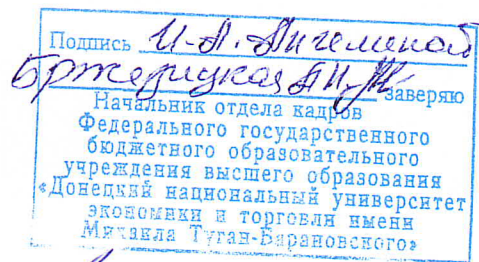 Подпись И.А. Ангелиной
Бржерицкая А.Н. заверяю
Начальник отдела кадров
Федерального государственного
бюджетного образовательного
учреждения высшего образования
«Донецкий национальный университет
экономики и торговли имени
Михаила Туган-Барановского»